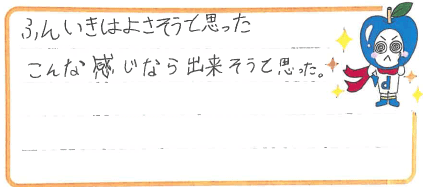 ふんいきはよさそうと思った
こんな感じなら出来そうと思った。
d